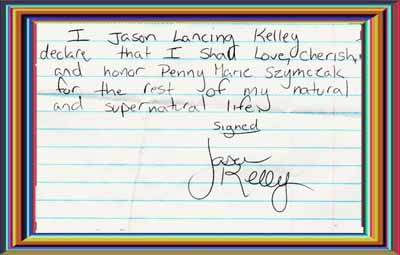 I Jason Lancing Kelley
declare that I shall Love, cherish,
and honor Penny Marie Szymczak
for the rest of my natural
and supernatural life.
signed
Jason
Kelly